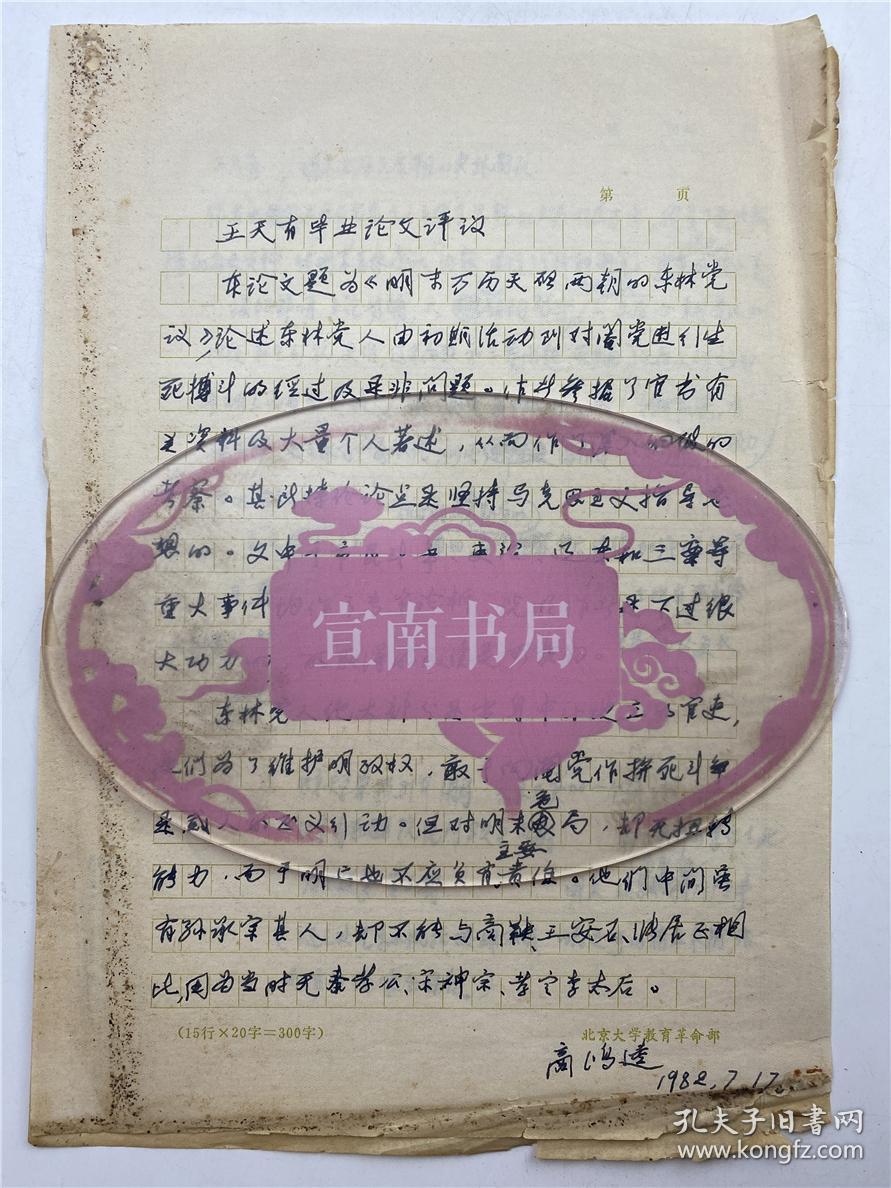 第 页
王天有毕业论文评议
本论文题为《明末万历天启两朝的东林党
议》,论述东林党人由初期活动到对阉党进行生
死搏斗的经过及是非问题。作者参据了官书有
关资料及大量个人著述,从而作了深入细致的
考察。其所持论点是坚持马克思主义指导思
想的。文中 三案等
重大事件 是下过很
大功力
东林党人 官吏,
他们为了维护明政权,敢于向阉党作拼死斗争
是感人的正义行动。但对明末危局,却无扭转
能力,而于明亡也不应负有主要责任。他们中间虽
有孙承宗其人,却不能与商鞅、王安石、张居正相
比,因为当时无秦孝公、宋神宗、孝定李太后。
(15行×20字=300字)
北京大学教育革命部
商鸿逵
1982.7.17.
宣南书局
孔夫子旧书网
www.kongfz.com